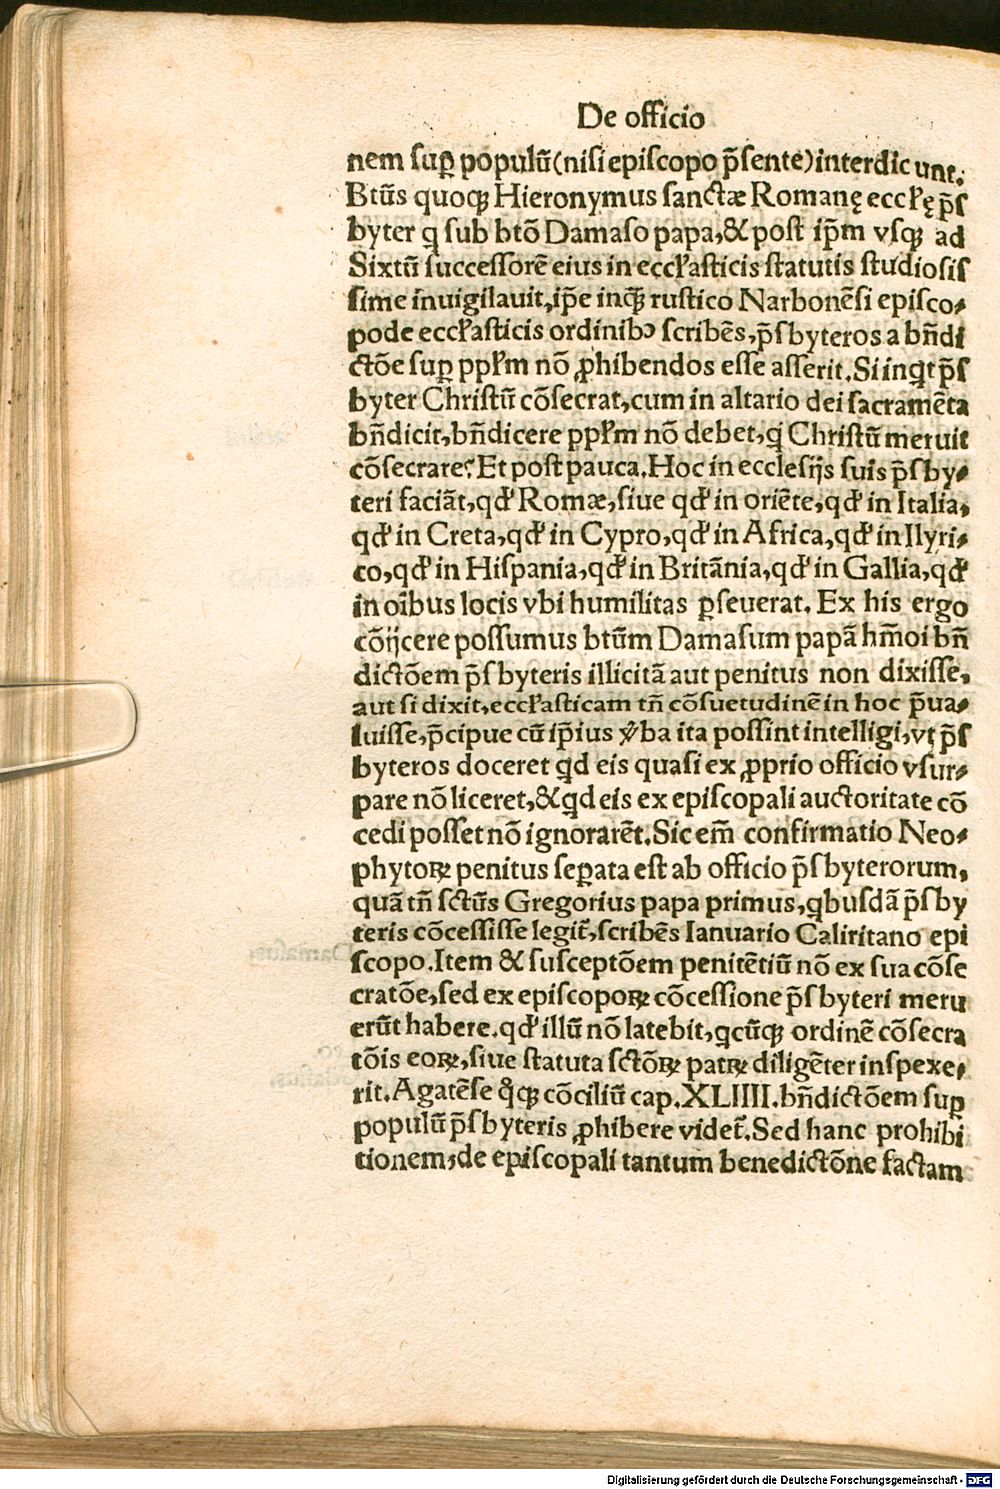 De officio
nem suꝑ populũ(nisi episcopo p̃sente)interdicunt.
Btũs quoqꝫ Hieronymus sanctæ Romanę eccłę p̃ſ
byter q̇ sub btõ Damaso papa,& post ip̃m vsqꝫ ad
Sixtũ successorẽ eius in eccłasticis statutis studiosis
sime inuigilauit,ip̃e inqꝫ rustico Narbonẽsi episco⸗
po de eccłasticis ordinibꝰ scribẽs,p̃sbyteros a bñdi
ctõe suꝑ ppłm nõ ꝓhibendos esse asserit.Si inq̇t p̃ſ
byter Christũ cõsecrat,cum in altario dei sacramẽta
bñdicit,bñdicere ppłm nõ debet,q̇ Christũ meruit
cõsecrare? Et post pauca.Hoc in ecclesijs suis p̃sby⸗
teri faciãt,qđ Romæ,siue qđ in oriẽte,qđ in Italia,
qđ in Creta,qđ in Cypro,qđ in Africa,qđ in Ilyri⸗
co,qđ in Hispania,qđ in Britãnia,qđ in Gallia,qđ
in oĩbus locis vbi humilitas ꝑseuerat. Ex his ergo
cõijcere possumus btũm Damasum papã hm̃oi bñ
dictõem p̃sbyteris illicitã aut penitus non dixisse,
aut si dixit,eccłasticam tñ cõsuetudinẽ in hoc p̃ua⸗
luisse,p̃cipue cũ ip̃ius v̾ba ita possint intelligi,vt p̃ſ
byteros doceret q̇d eis quasi ex ꝓprio officio vsur⸗
pare nõ liceret,& q̇d eis ex episcopali auctoritate cõ
cedi posset nõ ignorarẽt.Sic em̃ confirmatio Neo⸗
phytoꝝ penitus seꝑata est ab officio p̃sbyterorum,
quã tñ sctũs Gregorius papa primus,q̇busdã p̃sby
teris cõcessisse legit̃,scribẽs Ianuario Caliritano epi
scopo.Item & susceptõem penitẽtiũ nõ ex sua cõse
cratõe,sed ex episcopoꝝ cõcessione p̃sbyteri meru
erũt habere.qđ illũ nõ latebit,q̇cũqꝫ ordinẽ cõsecra
tõis eoꝝ,siue statuta sctõꝝ patꝝ diligẽter inspexe⸗
rit.Agatẽse q̊qꝫ cõciliũ cap.XLIIII.bñdictõem suꝑ
populũ p̃sbyteris ꝓhibere videt̃.Sed hanc prohibi
tionem,de episcopali tantum benedictõne factam
Digitalisierung gefördert durch die Deutsche Forschungsgemeinschaft - DFG